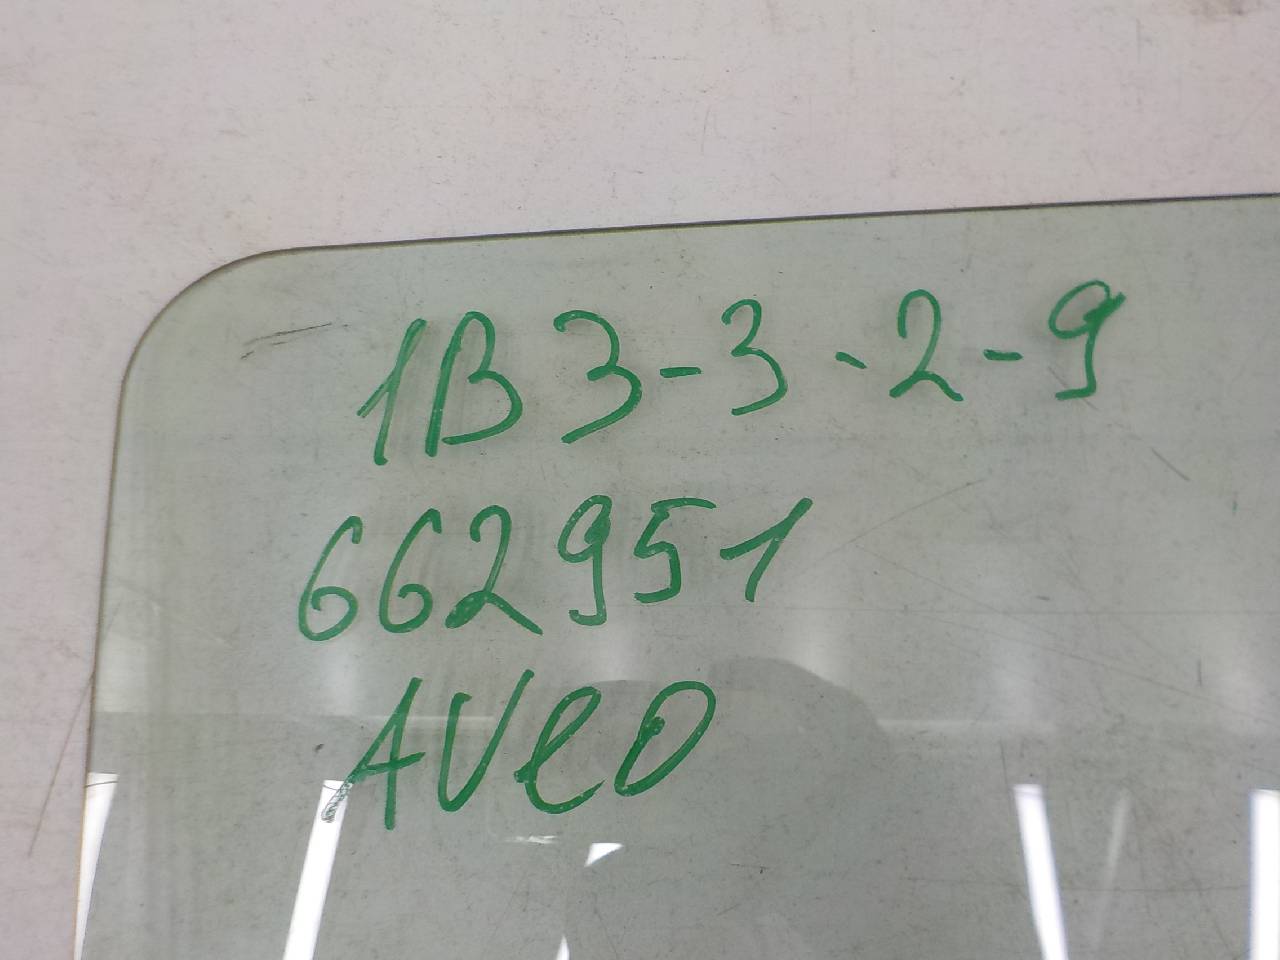 1B3-3-2-9
662951
AVeO